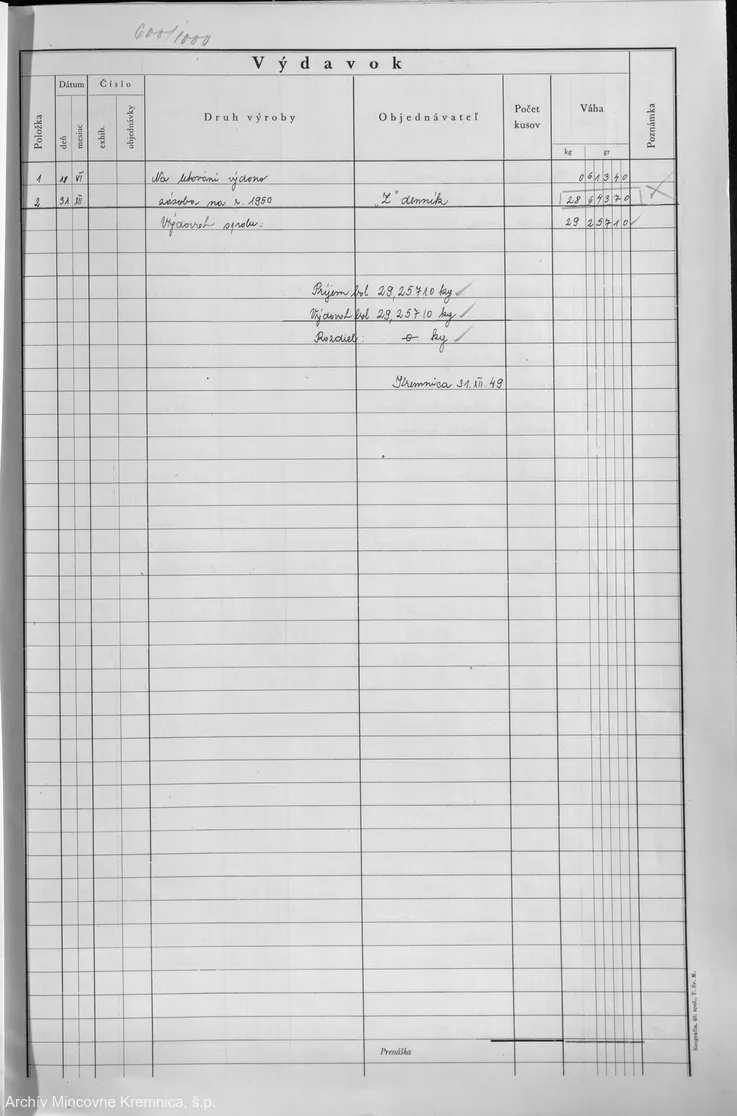 600/1000
Výdavok
Položka Dátum Číslo Druh výroby Objednávateľ Počet kusov Váha Poznámka
deň mesiac exhib. objednávky kg gr
1 18 VI. Na letování výdano 0 61340
2 31 XII. zásoba na r. 1950 „Z" denník 28 64370
Výdavok spolu: 29 25710
Príjem bol 29,25710 kg
Výdavok bol 29,25710 kg
Rozdiel: 0 kg
Kremnica 31. XII. 49
Prenáška
Archív Mincovne Kremnica, š.p.